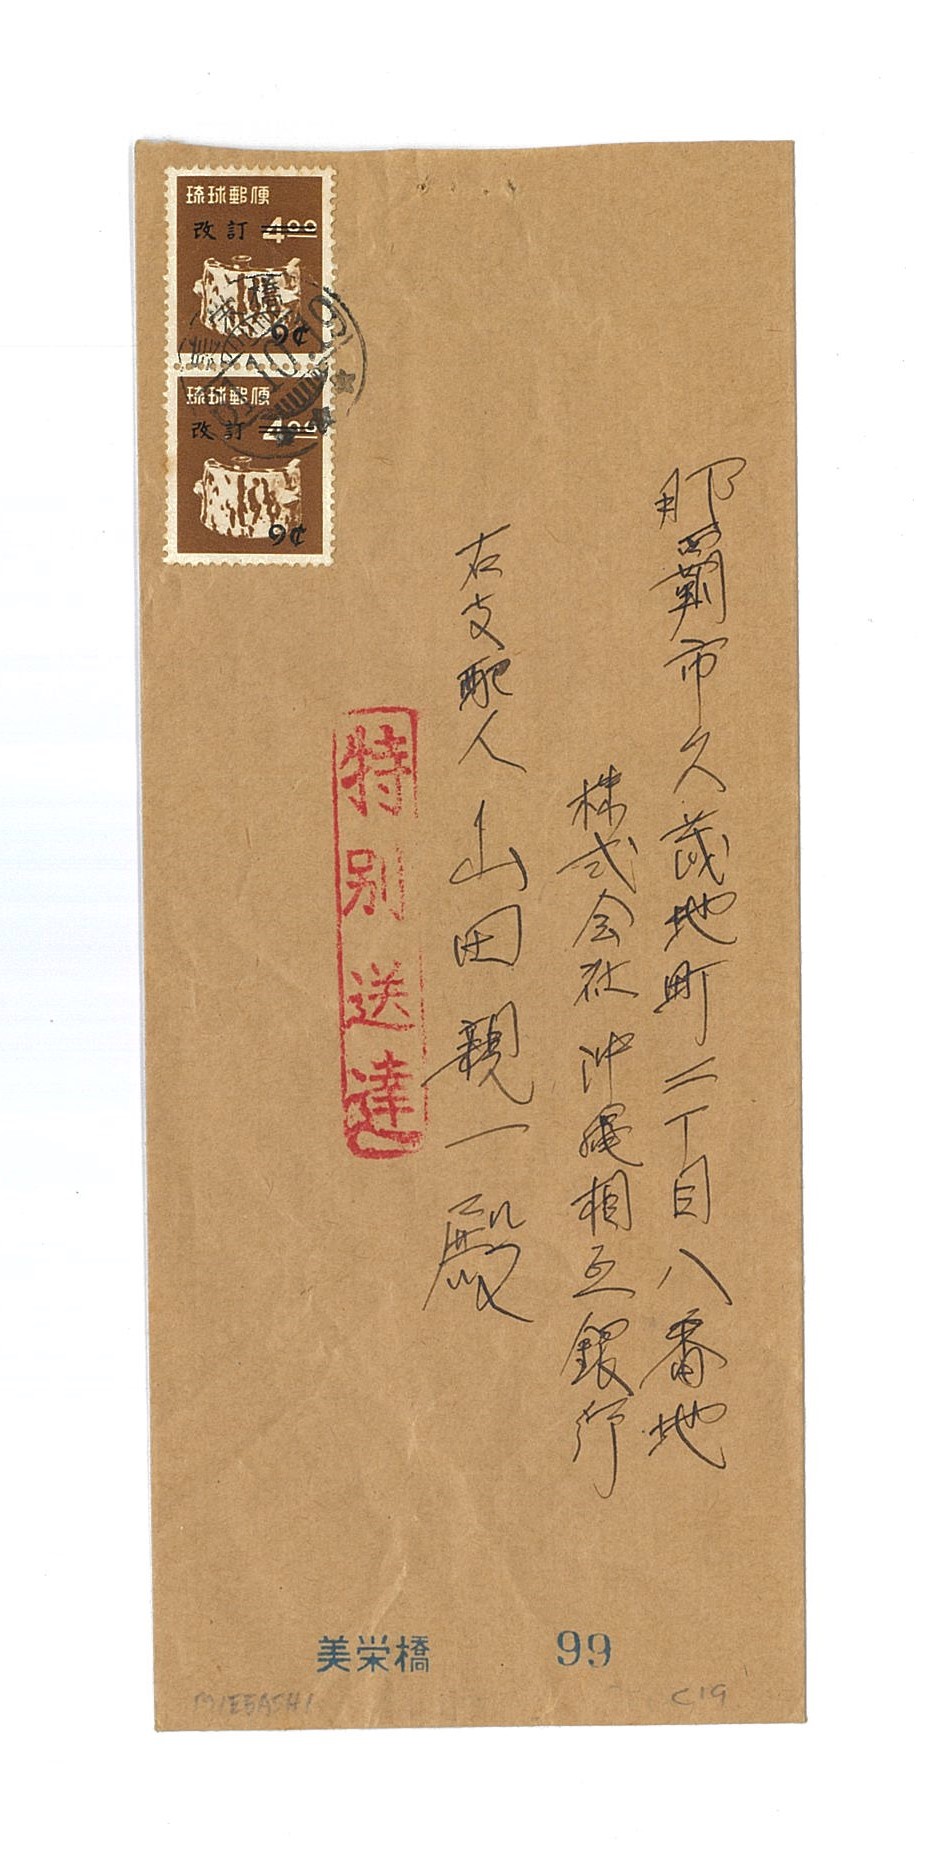 琉球郵便
改訂 4.00
9¢
琉球郵便
改訂 4.00
9¢
那覇市久茂地町二丁目八番地
株式会社沖縄相互銀行
右支配人 山田親一殿
特別送達
美栄橋 99
MIEBASHI C19